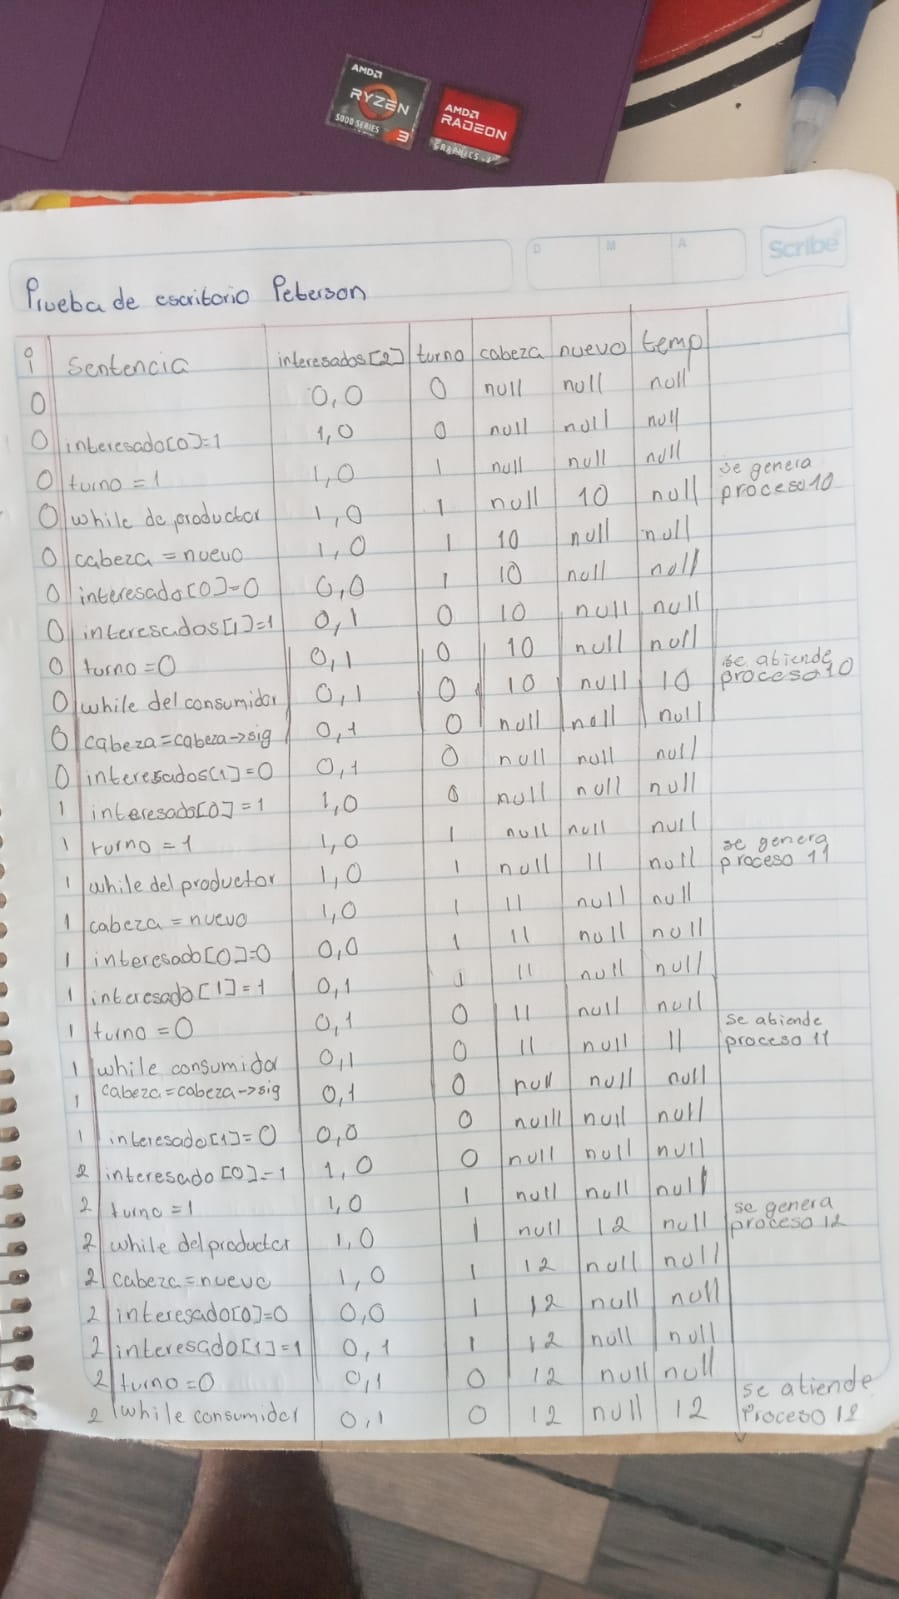 AMD
RYZEN
5000 SERIES 3
AMD
RADEON
GRAPHICS
D M A
Scribe
Prueba de escritorio Peterson
i sentencia interesados[2] turno cabeza nuevo temp
0 0,0 0 null null null
0 interesado[0]=1 1,0 0 null null null
0 turno = 1 1,0 1 null null null
0 while de productor 1,0 1 null 10 null se genera proceso 10
0 cabeza = nuevo 1,0 1 10 null null
0 interesado[0]=0 0,0 1 10 null null
0 interesados[1]=1 0,1 0 10 null null
0 turno = 0 0,1 0 10 null null
0 while del consumidor 0,1 0 10 null 10 se atiende proceso 10
0 cabeza=cabeza->sig 0,1 0 null null null
0 interesados[1]=0 0,1 0 null null null
1 interesado[0]=1 1,0 0 null null null
1 turno = 1 1,0 1 null null null
1 while del productor 1,0 1 null 11 null se genera proceso 11
1 cabeza = nuevo 1,0 1 11 null null
1 interesado[0]=0 0,0 1 11 null null
1 interesado[1]=1 0,1 1 11 null null
1 turno = 0 0,1 0 11 null null
1 while consumidor 0,1 0 11 null 11 se atiende proceso 11
1 cabeza=cabeza->sig 0,1 0 null null null
1 interesado[1]=0 0,0 0 null null null
2 interesado[0]=1 1,0 0 null null null
2 turno = 1 1,0 1 null null null
2 while del productor 1,0 1 null 12 null se genera proceso 12
2 cabeza=nuevo 1,0 1 12 null null
2 interesado[0]=0 0,0 1 12 null null
2 interesado[1]=1 0,1 1 12 null null
2 turno=0 0,1 0 12 null null
2 while consumidor 0,1 0 12 null 12 se atiende Proceso 12